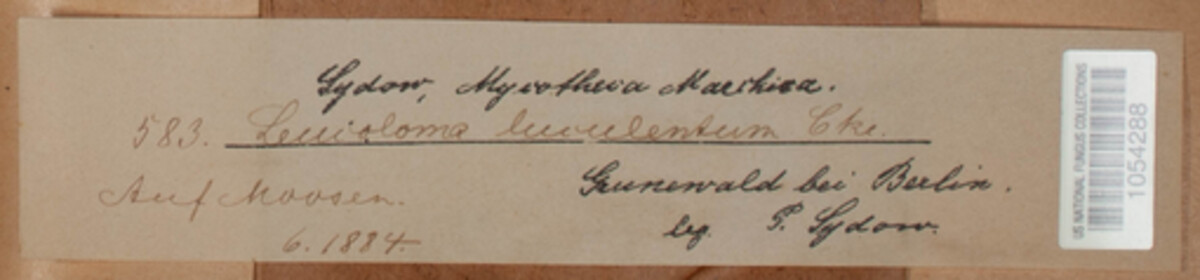 Sydow, Mycotheca Marchica.
583. Leucoloma luculentum Cke.
Auf Moosen.
Grunewald bei Berlin.
6. 1884.
leg. P. Sydow.
US NATIONAL FUNGUS COLLECTIONS
1054288